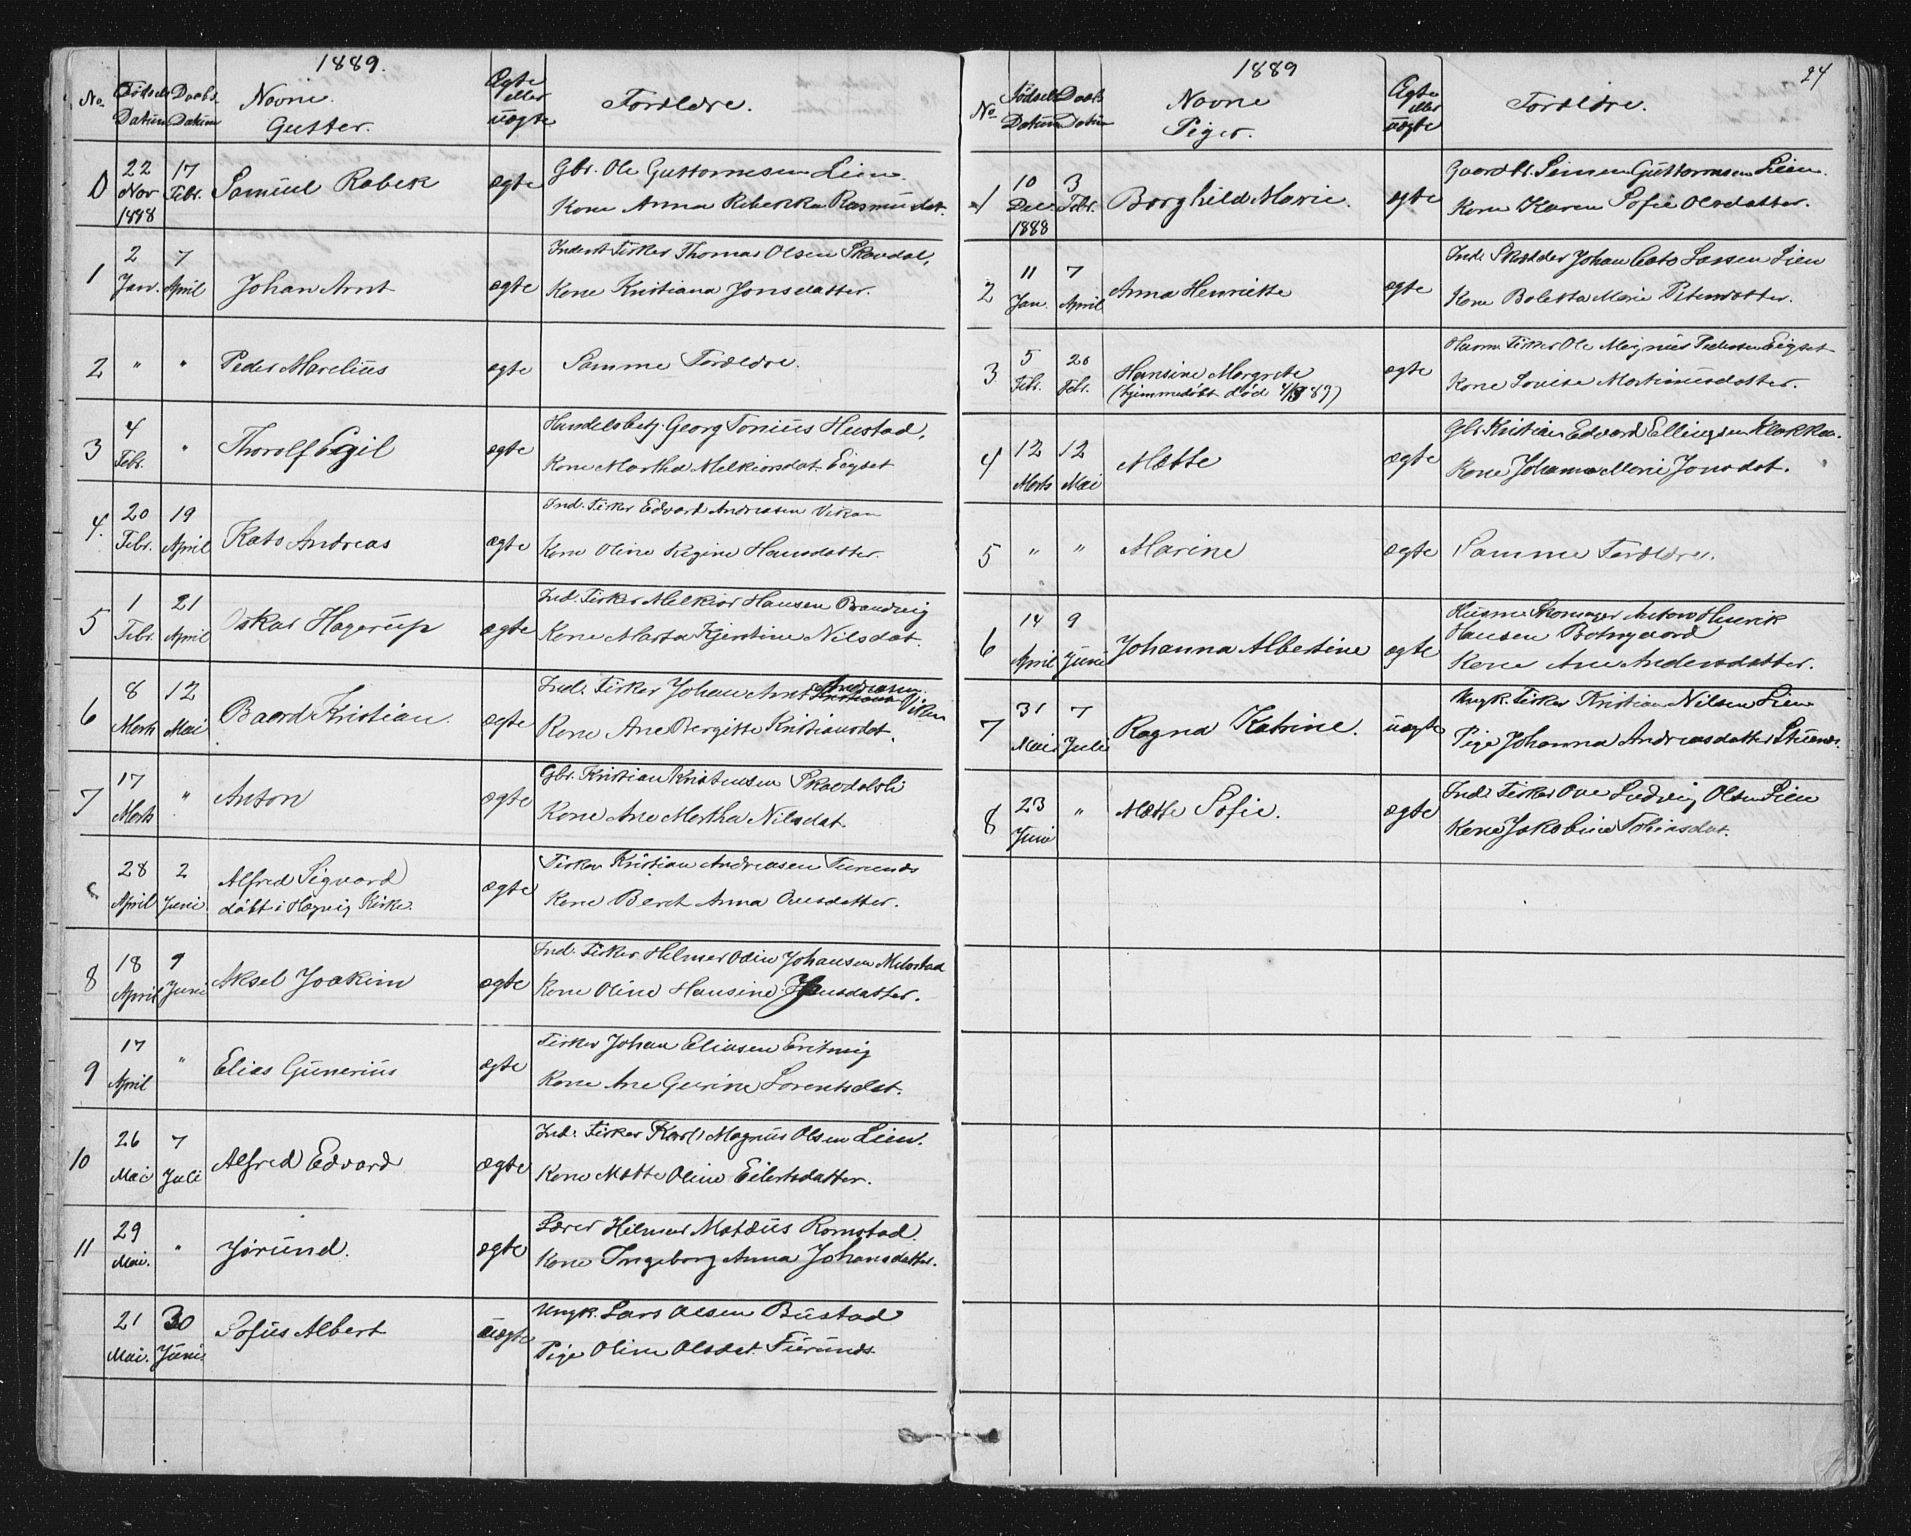 1889.
No. Fødsels Datum Daabs Datum Navne. Gutter. Ægte eller uægte Forældre.
0 22 Nov 1888 17 Febr. Samuel Rabek ægte Gbr. Ole Guttormesen Lien.
Kone Anna Rebekka Rasmusdat.
1 2 Jan. 7 April Johan Arnt ægte Inderst Fisker Thomas Olsen Skavdal,
Kone Kristiana Jonsdatter.
2 " " Peder Marelius ægte Samme Forældre.
3 4 Febr. " Thorolf Egil ægte Handelsbetj. Georg Tonius Hustad,
Kone Martha Melkiorsdat. Eigset
4. 20 Febr. 19 April Kato Andreas ægte Ind. Fisker Edvard Andreasen Vikan
Kone Oline Regine Hansdatter.
5 1 Febr. 21 April Oskar Hagerup ægte Ind. Fisker Melkior Hansen Brandvig
Kone Marta Kjerstine Nilsdat.
6 8 Marts 12 Mai Baard Kristian. ægte Ind. Fisker Johan Arnt Andreasen Vikan
Kone Ane Bergitte Kristiansdat.
7 17 Marts " Anton ægte Gbr. Kristian Kristensen Skavdalsli
Kone Ane Martha Nilsdat.
28 April 2 Juni Alfred Sigvard
døbt i Hægvig Kirke. ægte Fisker Kristian Andreasen Furunds
Kone Beret Anna Ovesdatter.
8 18 April 9 Juni Aksel Joakim ægte Ind. Fisker Helmer Odin Johansen Melostad
Kone Oline Hansine Jensdatter.
9 17 April " Elias Gunerius ægte Fisker Johan Eliasen
Kone Ane Gurine Lorentsdat.
10 26 Mai 7 Juli Alfred Edvard ægte Ind. Fisker Karl Magnus Olsen Lien.
Kone Mette Oline Eilertsdatter.
11 29 Mai. " Jørund. ægte Lærer Hilmar Matæus Romstad.
Kone Ingeborg Anna Johansdatter.
21 Mai. 30 Juni Sofus Albert uægte Ungk. Lars Olsen Bustad
Pige Oline Olsdat. Furunds
24
1889
No. Fødsels Datum Daabs Datum Navne Piger. Ægte eller uægte Forældre.
1 10 Dec. 1888 3 Febr. Borghild Marie. ægte Gaardbr. Simen Guttormsen Lien.
Kone Karen Sofie Olsdatter.
2 11 Jan. 7 April Anna Henrikke ægte Ind. Skrædder Johan Cato Larsen Lien
Kone Boletta Marie Petersdatter.
3 5 Febr. 26 Febr. Hansine Margrete
(hjemmedøbt død 4/3 89) ægte Husm. Fisker Ole Magnus Pedersen Eigset
Kone Lovise Martinusdatter.
4 12 Marts 12 Mai Mætte ægte Gbr. Kristian Edvard Ellingsen Klokken.
Kone Johanna Marie Jonsdat.
5 " " Marine ægte Samme Forældre.
6 14 April 9 Juni Johanna Albertine ægte Husm. Skomager Anton Henrik
Hansen Botngaard
Kone Ane Andersdatter.
7 31 Mai 7 Juli Ragna Katrine. uægte Ungk. Fisker Kristian Nilsen Lien
Pige Johanna Andreasdatter
8 23 Juni " Mætte Sofie. ægte Ind. Fisker Ove Ludvig Olsen Lien
Kone Jakobine Tobiasdat.